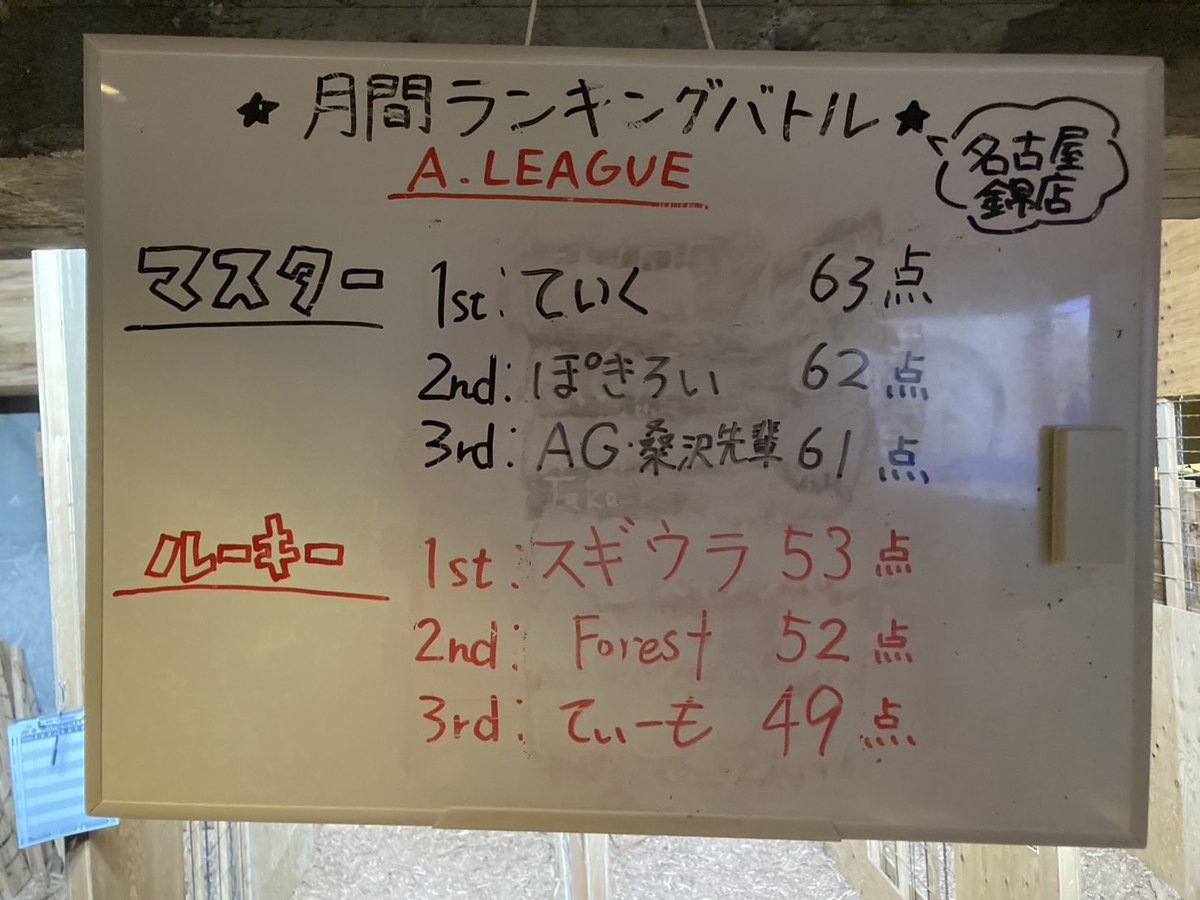 ★月間ランキングバトル★
A.LEAGUE
名古屋
錦店
マスター
1st:ていく 63点
2nd:ぽきろい 62点
3rd:AG・桑沢先輩 61点
Taka
ルーキー
1st:スギウラ 53点
2nd:Forest 52点
3rd:てぃーも 49点